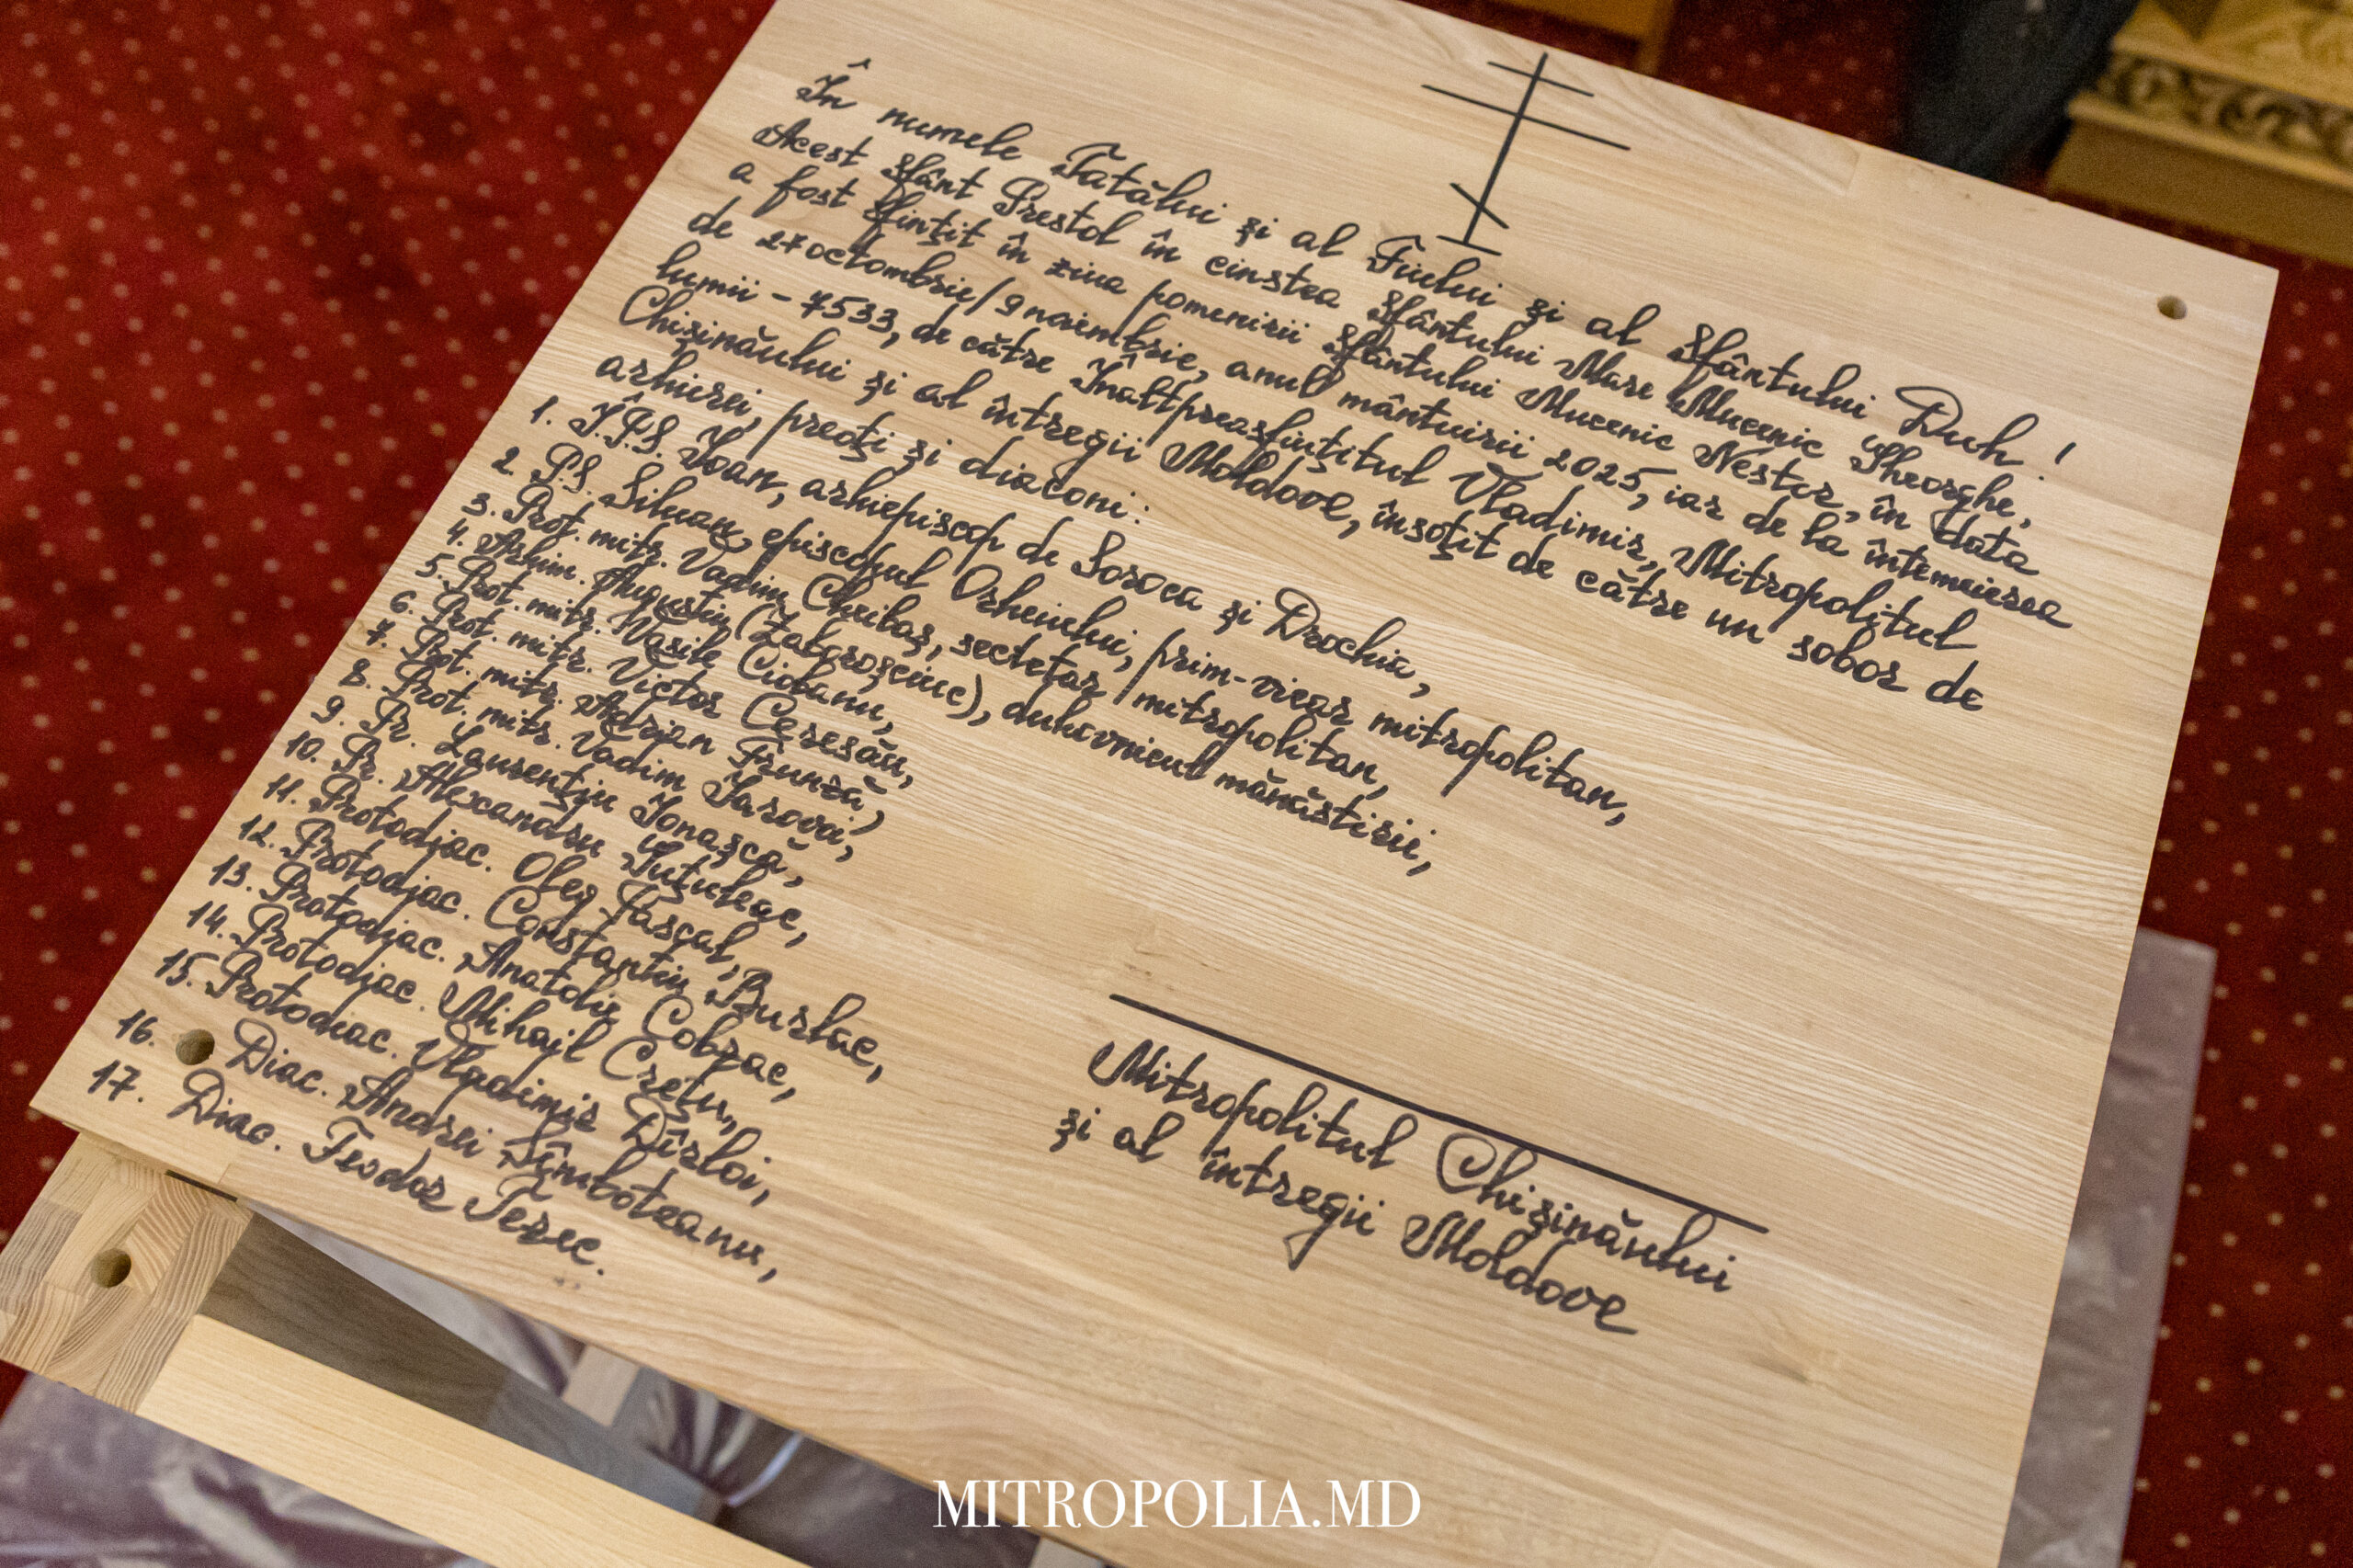 În numele Tatălui și al Fiului și al Sfântului Duh!
Acest Sfânt Prestol în cinstea Sfântului Mare Mucenic Gheorghe,
a fost sfințit în ziua pomenirii Sfântului Mucenic Nestor, în data
de 27 octombrie/9 noiembrie, anul mântuirii 2025, iar de la întemeierea
lumii - 7533, de către Înaltpreasfințitul Vladimir, Mitropolitul
Chișinăului și al întregii Moldove, însoțit de către un sobor de
arhierei, preoți și diaconi:
1. Î.P.S. Ioan, arhiepiscop de Soroca și Drochia,
2. P.S. Siluan, episcopul Orheiului, prim-vicar mitropolitan,
3. Prot. mitr. Vadim Cheibaș, secretar mitropolitan,
4. Arhim. Augustin (Zaboroșciuc), duhovnicul mănăstirii,
5. Prot. mitr. Vasile Ciobanu,
6. Prot. mitr. Victor Ceresău,
7. Prot. mitr. Adrian Frunză,
8. Prot. mitr. Vadim Iarovoi,
9. Pr. Laurențiu Ionașcă,
10. Pr. Alexandru Țuțuleac,
11. Protodiac. Oleg Pascal,
12. Protodiac. Constantin Burlac,
13. Protodiac. Anatolie Cobzac,
14. Protodiac. Mihail Crețu,
15. Protodiac. Vladimir Dîrloi,
16. Diac. Andrei Sîmboteanu,
17. Diac. Feodor Terec.
Mitropolitul Chișinăului
și al întregii Moldove
MITROPOLIA.MD